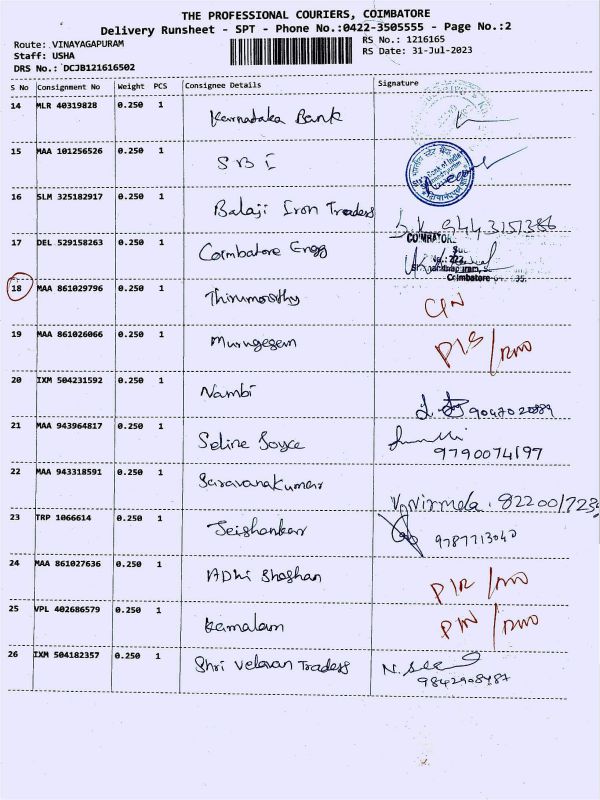 THE PROFESSIONAL COURIERS, COIMBATORE
Delivery Runsheet - SPT - Phone No.:0422-3505555 - Page No.:2
Route: VINAYAGAPURAM RS No.: 1216165
Staff: USHA RS Date: 31-Jul-2023
DRS No.: DCJB121616502
S No Consignment No Weight PCS Consignee Details Signature
14 MLR 40319828 0.250 1 Karnataka Bank
15 MAA 101256526 0.250 1 SBI
16 SLM 325182917 0.250 1 Balaji Iron Traders S.K 9443157386
17 DEL 529158263 0.250 1 Coimbatore Engg COIMBATORE
18 MAA 861029796 0.250 1 Thirumoorthy C/N
19 MAA 861026066 0.250 1 Murugesan P/S/
20 IXM 504231592 0.250 1 Nambi
21 MAA 943964817 0.250 1 Seline Joyce 9790074197
22 MAA 943318591 0.250 1 Saravanakumar V. Nirmala.
23 TRP 1066614 0.250 1 Jeishankar 9787713040
24 MAA 861027636 0.250 1 ADhi
25 VPL 402686579 0.250 1 Kamalam
26 IXM 504182357 0.250 1 Shri Velavan Traders 9842908487